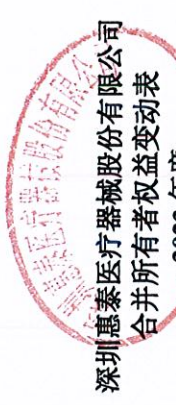 深圳惠泰医疗器械股份有限公司
合并所有者权益变动表
年度